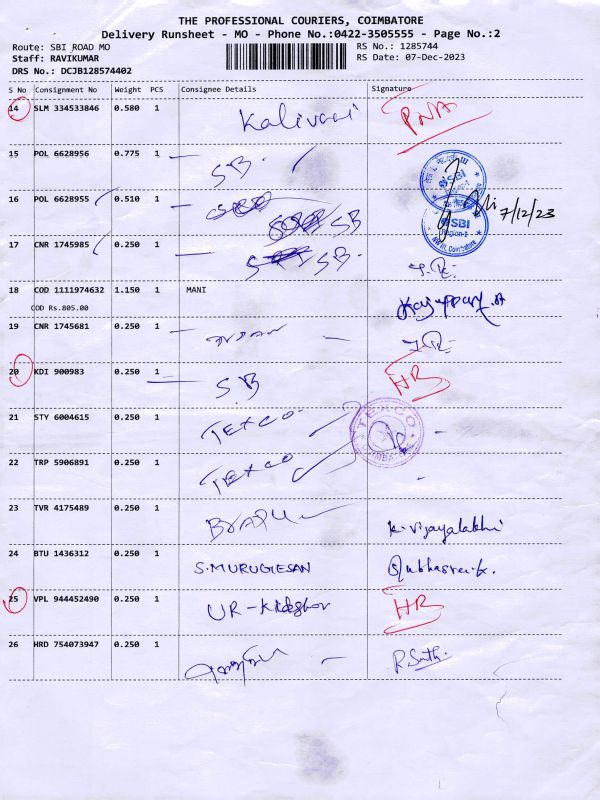 THE PROFESSIONAL COURIERS, COIMBATORE
Delivery Runsheet - MO - Phone No.:0422-3505555 - Page No.:2
Route: SBI ROAD MO
RS No.: 1285744
Staff: RAVIKUMAR
RS Date: 07-Dec-2023
DRS No.: DCJB128574402
S No Consignment No Weight PCS Consignee Details Signature
14 SLM 334533846 0.580 1 Kalivani PNA
15 POL 6628956 0.775 1 SB.
SBI
16 POL 6628955 0.510 1 SB 7/12/23
SBI
Region-I
Coimbatore
17 CNR 1745985 0.250 1 SB.
18 COD 1111974632 1.150 1 MANI
COD Rs.805.00
19 CNR 1745681 0.250 1
20 KDI 900983 0.250 1 SB HB
21 STY 6004615 0.250 1 TEXCO
TEXCO
22 TRP 5906891 0.250 1 TEXCO
23 TVR 4175489 0.250 1 K. Vijayalakhi
24 BTU 1436312 0.250 1 S.MURUGESAN
25 VPL 944452490 0.250 1 UR-Kideshor HB
26 HRD 754073947 0.250 1